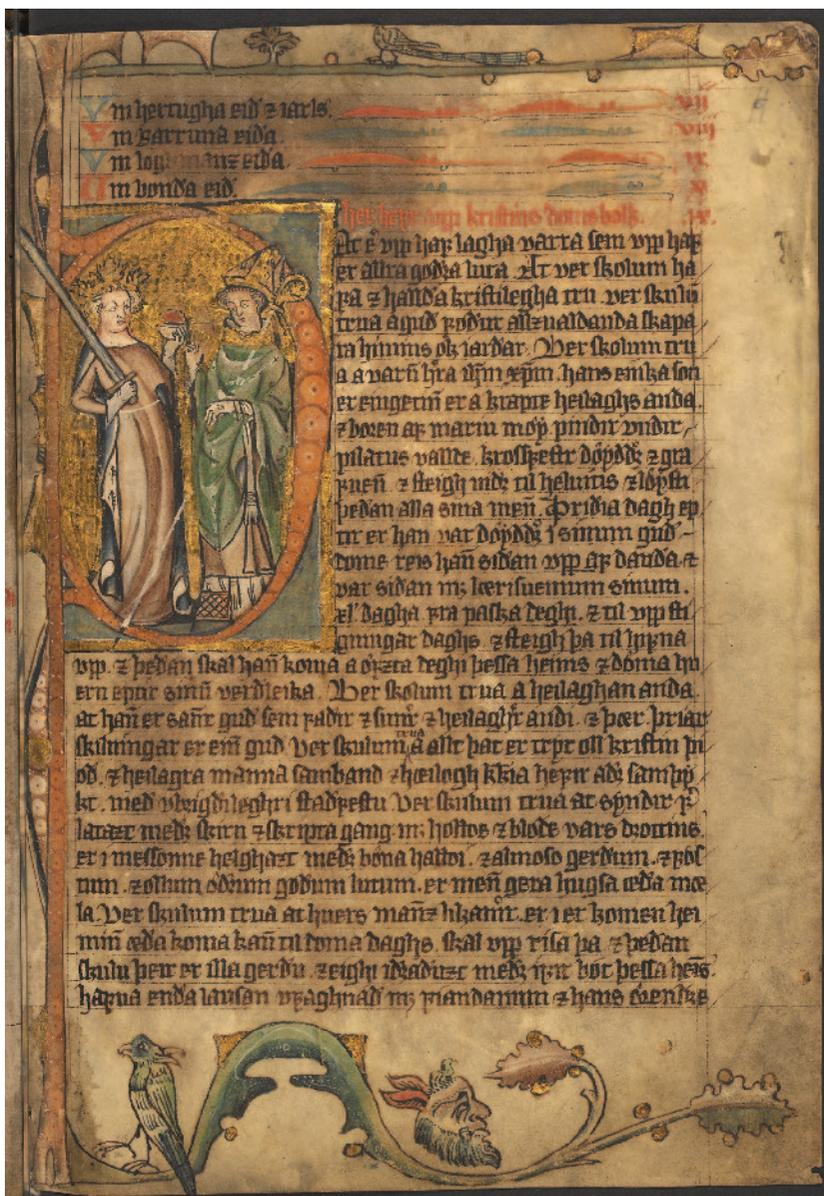 Vm hertugha eið ⁊ iarls. vii
Vm farruna eiða. viij
Vm logmanz eiða ix
Vm bonda eið. x
her hefr upp kristins doms bolk.
At er vpp haf lagha varra sem vpp haf
er allra goðra luta. At ver skolum ha
fa ⁊ halda kristilegha tru. ver skulū
trua a guð foður allzualdanda skapa
ra himins ok iarðar. Ver skolum tru
a a varn hꝛa ihm xpm. hans einka son
er eingetin er a krapte heilaghs anda.
⁊ boren af mariu møy pindir vndir
pilatus vallde. krossfestr døyddr ⁊ gra
fuen. ⁊ steigh niðr til heluitis ⁊ løysti
þeðan alla sina men. Þriðia dagh ep
tir er han var døyddr i sinum guð
dome reis han siðan vpp af dauða. ⁊
var siðan mz lærisueinum sinum.
xl. dagha fra paska deghi. ⁊ til vpp sti
gningar daghs. ⁊ steigh þa til hifna
vpp. ⁊ þeðan skal han koma a øfzta deghi þessa heims ⁊ døma hu
ern eptir sinū verðleika. Ver skolum trua a heilaghan anda.
at han er sannr guð sem faðir ⁊ sunr ⁊ heilaghr andi. ⁊ þær þriar
skilningar er ein guð Ver skulum trua a allt þat er tryr oll kristin þi
oð. ⁊ heilagra manna samband ⁊ hæilogh kkia hefir
með vbrigðileghri staðfestu Ver skulum trua at syndir
latazt meðr skirn ⁊ skripta gang. mz holloe ⁊ bloðe vars drottins.
er i messonne helghazt meðr bøna halldi. ⁊ almoso gerðum. ⁊ fos
tum. ⁊ ollum oðrum goðum lutum. er men gera hugsa æða mæ
la. Ver skulum trua at huers manz likamr. er i er komen hei
min æða koma kan til doma daghs. skal vpp risa þa. ⁊ þeðan
skulu þeir er illa gerðu. ⁊ eighi iðraðuzt meðr bot þessa heims.
hafua enda lausan vfaghnað mz fiandanum ⁊ hans ørendre